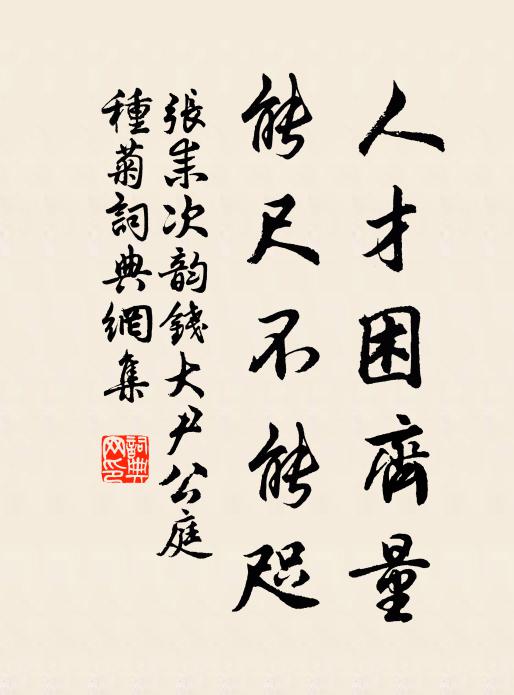 人才困齊量
能尺不能咫
張耒次韵錢大尹公庭
種菊詞典網集
詞典
网印